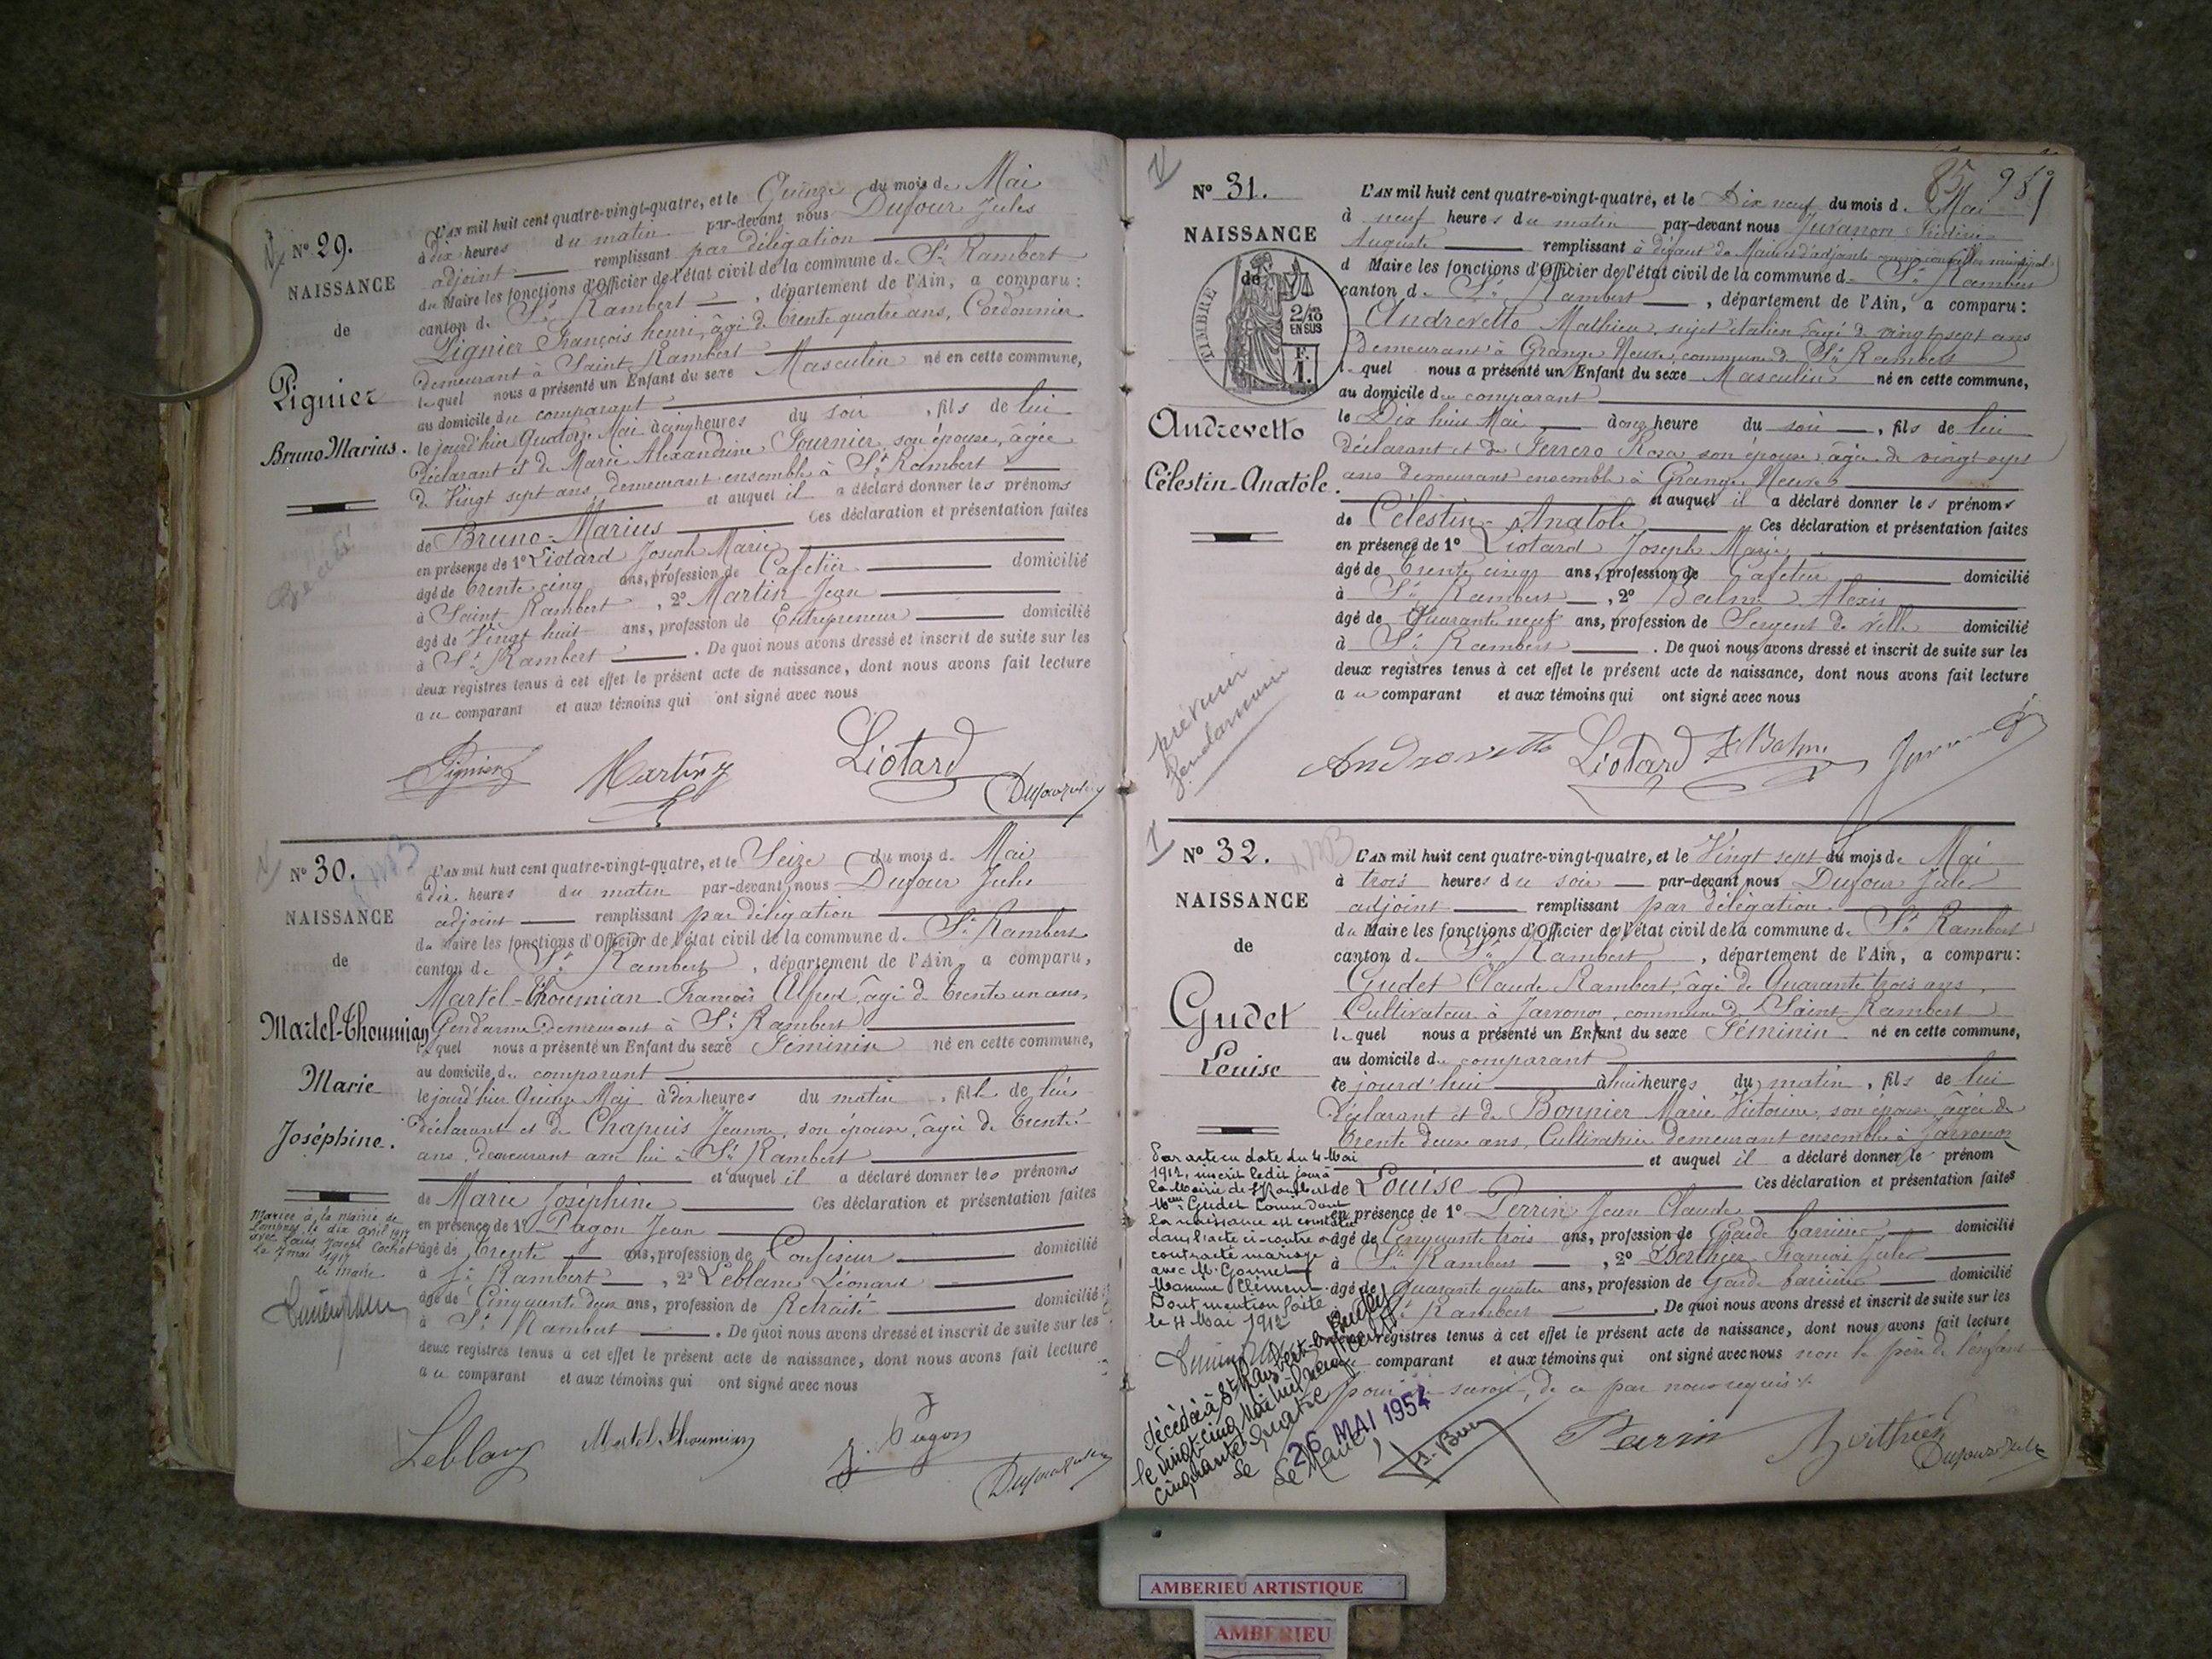 N° 29.
NAISSANCE
de
Pignier
Bruno Marius.
L'AN mil huit cent quatre-vingt-quatre, et le Quinze du mois de Mai
à dix heures du matin par-devant nous Dufour Jules
adjoint remplissant par délégation
du Maire les fonctions d'Officier de l'état civil de la commune de St Rambert
canton de St Rambert, département de l'Ain, a comparu:
Pignier François henri, âgé de trente quatre ans, Cordonnier
demeurant à Saint Rambert
lequel nous a présenté un Enfant du sexe Masculin né en cette commune,
au domicile du comparant
le jourd'hier Quatorze Mai à cinq heures du soir, fils de lui
déclarant et de Marie Alexandrine Fournier son épouse, âgée
de Vingt sept ans, demeurant ensemble à St Rambert
et auquel il a déclaré donner les prénoms
de Bruno-Marius Ces déclaration et présentation faites
en présence de 1° Liotard Joseph Marie
âgé de trente cinq ans, profession de Cafetier domicilié
à Saint Rambert, 2° Martin Jean
âgé de Vingt huit ans, profession de Entrepreneur domicilié
à St Rambert. De quoi nous avons dressé et inscrit de suite sur les
deux registres tenus à cet effet le présent acte de naissance, dont nous avons fait lecture
au comparant et aux témoins qui ont signé avec nous
Pignier Martin Liotard
Dufour Jules
N° 30.
NAISSANCE
de
Martel-Thoumian
Marie
Joséphine.
L'AN mil huit cent quatre-vingt-quatre, et le Seize du mois de Mai
à dix heures du matin par-devant nous Dufour Jules
adjoint remplissant par délégation
du Maire les fonctions d'Officier de l'état civil de la commune de St Rambert
canton de St Rambert, département de l'Ain, a comparu,
Martel-Thoumian François Alfred, âgé de trente un ans,
Gendarme demeurant à St Rambert
lequel nous a présenté un Enfant du sexe Féminin né en cette commune,
au domicile du comparant
le jourd'hier Quinze Mai à dix heures du matin, fille de lui
déclarant et de Chapuis Jeanne, son épouse, âgée de trente
ans, demeurant avec lui à St Rambert
et auquel il a déclaré donner les prénoms
de Marie Joséphine Ces déclaration et présentation faites
en présence de 1° Pagon Jean
âgé de trente ans, profession de Confiseur domicilié
à St Rambert, 2° Leblanc Léonard
âgé de Cinquante deux ans, profession de Retraité domicilié
à St Rambert. De quoi nous avons dressé et inscrit de suite sur les
deux registres tenus à cet effet le présent acte de naissance, dont nous avons fait lecture
au comparant et aux témoins qui ont signé avec nous
Mariée à la mairie de
le dix avril 1917
avec Louis Joseph Cochet
le 7 mai 1917
le maire
Leblanc Martel Thoumian J. Pagon
Dufour Jules
85 989
N° 31.
NAISSANCE
de
TIMBRE
2/10
EN SUS
F.
1.
Andrevetto
Célestin-Anatole.
prévenir
gendarmerie
L'AN mil huit cent quatre-vingt-quatre, et le Dix neuf du mois de Mai
à neuf heures du matin par-devant nous Juranon Frédéric
Auguste remplissant à défaut de Maire et d'adjoints comme conseiller municipal
d Maire les fonctions d'Officier de l'état civil de la commune de St Rambert
canton de St Rambert, département de l'Ain, a comparu:
Andrevetto Mathieu, sujet italien, âgé de vingt sept ans
demeurant à Grange Neuve, commune de St Rambert
lequel nous a présenté un Enfant du sexe Masculin né en cette commune,
au domicile du comparant
le Dix huit Mai à onze heure du soir, fils de lui
déclarant et de Ferrero Rosa son épouse, âgée de vingt sept
ans demeurant ensemble à Grange Neuve
et auquel il a déclaré donner les prénoms
de Célestin-Anatole Ces déclaration et présentation faites
en présence de 1° Liotard Joseph Marie
âgé de trente cinq ans, profession de Cafetier domicilié
à St Rambert, 2° Balme Alexis
âgé de Quarante neuf ans, profession de Sergent de ville domicilié
à St Rambert. De quoi nous avons dressé et inscrit de suite sur les
deux registres tenus à cet effet le présent acte de naissance, dont nous avons fait lecture
au comparant et aux témoins qui ont signé avec nous
Andrevetto Liotard Balme
N° 32.
NAISSANCE
de
Gudet
Louise
L'AN mil huit cent quatre-vingt-quatre, et le Vingt sept du mois de Mai
à trois heures du soir par-devant nous Dufour Jules
adjoint remplissant par délégation
du Maire les fonctions d'Officier de l'état civil de la commune de St Rambert
canton de St Rambert, département de l'Ain, a comparu:
Gudet Claude Rambert, âgé de Quarante trois ans,
Cultivateur à Javronoz, commune de Saint Rambert
lequel nous a présenté un Enfant du sexe Féminin né en cette commune,
au domicile du comparant
ce jourd'hui à huit heures du matin, fils de lui
déclarant et de Bonnier Marie Victorine, son épouse âgée de
trente deux ans, Cultivatrice demeurant ensemble à Javronoz
et auquel il a déclaré donner le prénom
de Louise Ces déclaration et présentation faites
en présence de 1° Perrin Jean Claude
âgé de Cinquante trois ans, profession de Garde barrière domicilié
à St Rambert, 2° Berthier François Jules
âgé de quarante quatre ans, profession de Garde barrière domicilié
St Rambert. De quoi nous avons dressé et inscrit de suite sur les
registres tenus à cet effet le présent acte de naissance, dont nous avons fait lecture
comparant et aux témoins qui ont signé avec nous non le père de l'enfant
pour ne savoir, de ce par nous requis.
Par acte en date du 4 Mai
1912, inscrit ledit jour à
la Mairie de St Rambert
Gudet Louise dont
la naissance est constatée
dans l'acte ci-contre a
contracté mariage
avec Mr Gonnet
Clément.
Dont mention faite
le 4 Mai 1912
Décédée à St Rambert-en-Bugey
le vingt-cinq Mai mil neuf cent
cinquante quatre
Le 26 MAI 1954
Le Maire,
Perrin Berthier
Dufour Jules
AMBERIEU ARTISTIQUE
AMBERIEU